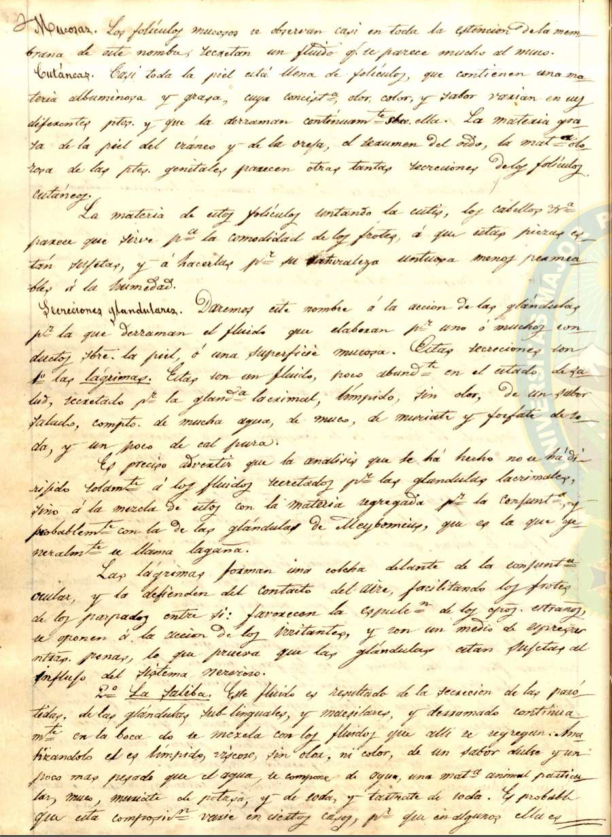 Mucosas. Los folículos mucosos se observan casi en toda la estencion de la mem
brana de este nombre, secretan un fluido qᵉ se parece mucho al muco.
Cutáneas. Casi toda la piel está llena de folículos, que contienen una ma
teria albuminosa y grasa, cuya consistᵃ, olor, color, y sabor varian en sus
diferentes ptes. y que la derraman continuamᵗᵉ sbre. ella. La materia gra
sa de la piel del craneo y de la oreja, el serumen del oido, la matᵃ olo
rosa de las ptes. genitales parecen otras tantas secreciones de los folículos
cutáneos.
La materia de estos folículos untando la cutis, los cabellos
parece que sirve pᵃ la comodidad de los frotes, á que estas piezas es
tán sujetas, y á hacerlas pʳ su naturaleza untuosa menos permea
bles á la humedad.
Secreciones glandulares. Daremos este nombre á la accion de las glándulas
pʳ la que derraman el fluido que elaboran pʳ uno ó muchos con
ductos, sbre. la piel, ó una superficie mucosa. Estas secreciones son
1º las lágrimas. Estas son un fluido, poco abundᵗᵉ en el estado de sa
lud, secretado pʳ la glandᵃ lacrimal, límpido, sin olor, de un sabor
salado, compto. de mucha agua, de muco, de muriate y fosfate de so
da, y un poco de cal pura.
Es preciso advertir que la análisis que se há hecho no se há di
rijido solamᵗᵉ á los fluidos secretados pʳ las glandulas lacrimales,
sino á la mezcla de estos con la materia segregada pʳ la conjuntᵃ, y
probablemᵗᵉ con la de las glándulas de Meybomius, que es la que ge
neralmᵗᵉ se llama lagaña.
Las lágrimas forman una colcha delante de la conjuntᵃ
ocular, y la defienden del contacto del aire, facilitando los frotes
de los parpados entre sí: favorecen la espulsⁿ de los cpos. estraños,
se oponen á la accion de los irritantes, y son un medio de espresar
ntras. penas, lo que prueva que las glándulas están sujetas al
influjo del sistema nervioso.
2º La saliba. Este fluido es resultado de la secrecion de las paró
tidas, de las glándulas sub-linguales, y macsilares, y derramado continua
mᵗᵉ en la boca do se mezcla con los fluidos que allí se segregan. Ana
lizandolo el es límpido, viscoso, sin olor, ni color, de un sabor dulse y un
poco mas pesado que el agua, se compone de agua, una matᵃ animal particu
lar, muco, muriate de potasa, y de soda, y tartrate de soda. Es probablᵉ
que esta composisⁿ varie en ciertos casos, pʳ que en algunos ella es